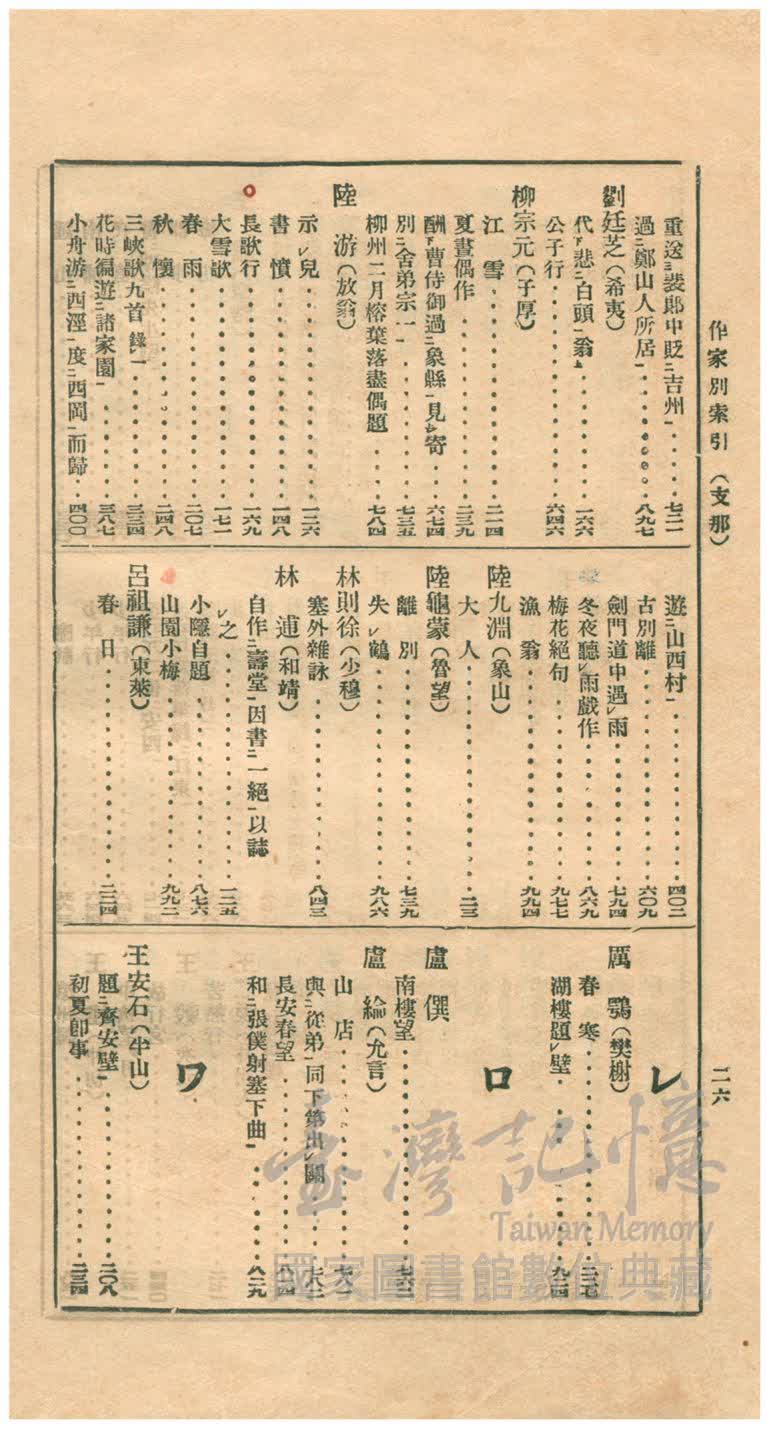 作家別索引（支那）
二六
重送㆓裴郎中貶㆓吉州㆒・・・・・七二一
過㆓鄭山人所居㆒・・・・・・八九七
劉廷芝（希夷）
代㆘悲㆓白頭㆒翁㆖・・・・・・一六六
公子行・・・・・・六四六
柳宗元（子厚）
江雪・・・・・・二一四
夏晝偶作・・・・・・二三九
酬㆘曹侍御過㆓象縣㆒見㆖寄・・・・六七四
別㆓舍弟宗一㆒・・・・・・七三五
柳州二月榕葉落盡偶題・・・・七八四
陸游（放翁）
示㆑兒・・・・・・一二六
書憤・・・・・・一四八
長歌行・・・・・・一六九
大雪歌・・・・・・一七一
春雨・・・・・・二〇七
秋懷・・・・・・二四八
三峽歌九首 錄一・・・・・・三三四
花時徧遊㆓諸家園㆒・・・・・・三八七
小舟游㆓西涇㆒度㆓西岡㆒而歸・・四〇〇
遊㆓山西村㆒・・・・・・四〇二
古別離・・・・・・六〇九
劍門道中遇㆑雨・・・・・・七九四
冬夜聽㆑雨戲作・・・・・・八六九
梅花絕句・・・・・・九七七
漁翁・・・・・・九九四
陸九淵（象山）
大人・・・・・・二三
陸龜蒙（魯望）
離別・・・・・・七三九
失㆑鶴・・・・・・九八六
林則徐（少穆）
塞外雜詠・・・・・・八四三
林逋（和靖）
自作㆓壽堂㆒因書㆓一絕㆒以誌
㆑之・・・・・・一二五
小隱自題・・・・・・八七六
山園小梅・・・・・・九九二
呂祖謙（東萊）
春日・・・・・・二二四
レ
厲鶚（樊榭）
春寒・・・・・・二三七
湖樓題㆑壁・・・・・・九四
ロ
盧僎
南樓望・・・・・・七六三
盧綸（允言）
山店・・・・・・七六一
與㆓從弟㆒同下第出㆑關・・・・七八三
長安春望・・・・・・八一四
和㆓張僕射塞下曲㆒・・・・・・八二九
ワ
王安石（半山）
題㆓齊安壁㆒・・・・・・二〇八
初夏卽事・・・・・・二三四
臺灣記憶
Taiwan Memory
國家圖書館數位典藏